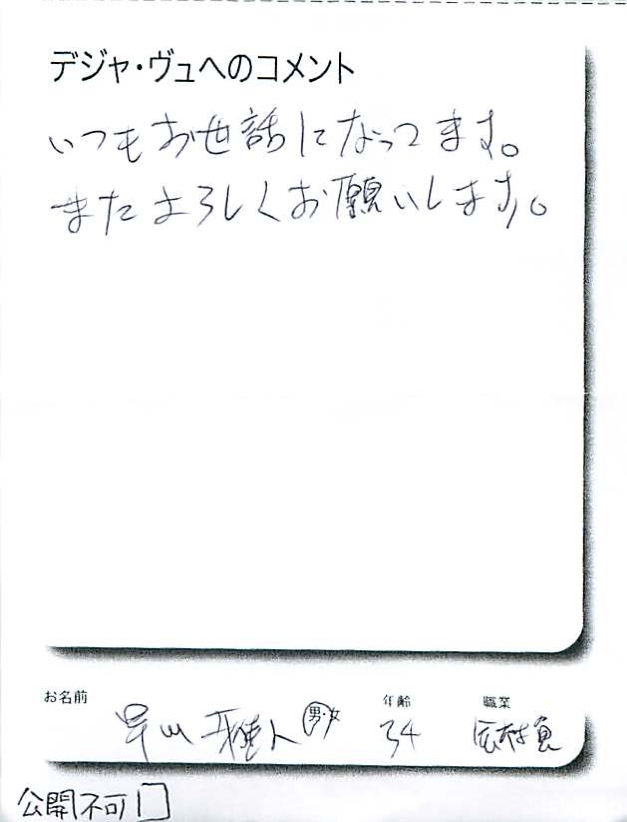 デジャ・ヴュへのコメント
いつもお世話になってます。
またよろしくお願いします。
お名前
男・女
年齢
34
職業
公開不可